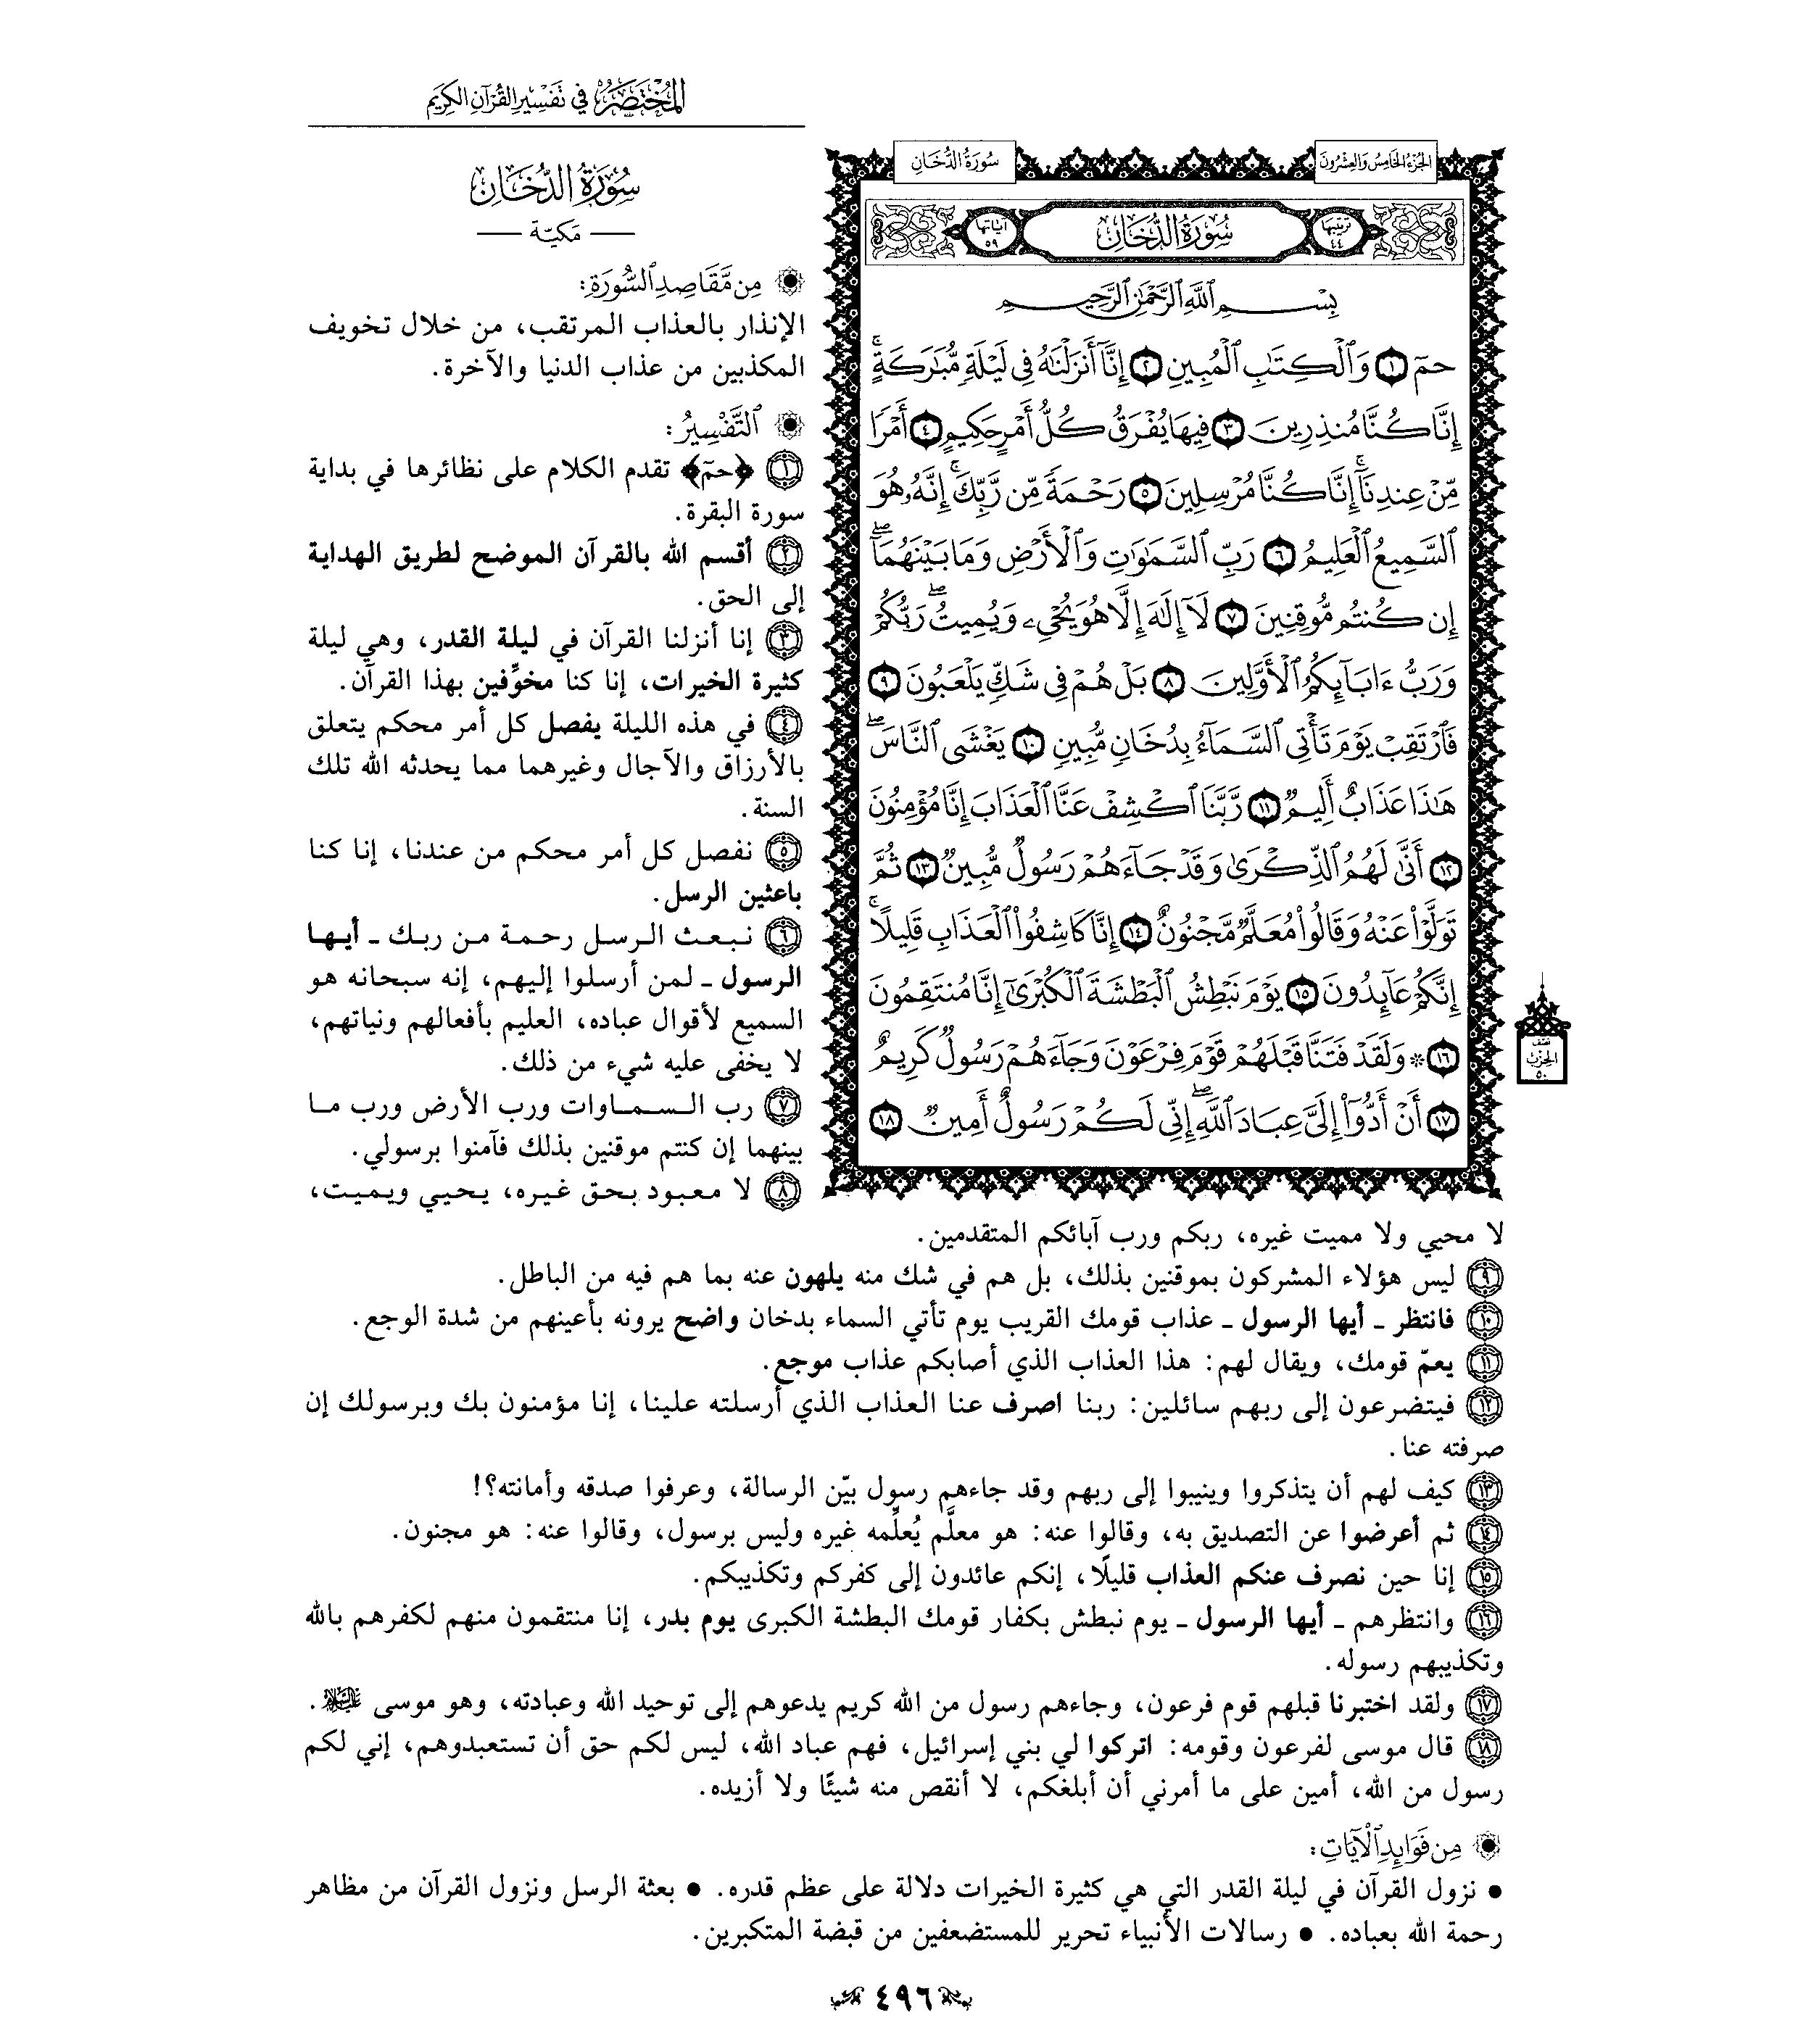 المُخْتَصَرُ فِي تَفْسِيرِ القُرْآنِ الكَرِيمِ
الجُزْءُ الخَامِسُ وَالعِشْرُونَ
سُورَةُ الدُّخَانِ
تَرْتِيبُهَا ٤٤
سُورَةُ الدُّخَانِ
آيَاتُهَا ٥٩
بِسْمِ ٱللَّهِ ٱلرَّحْمَٰنِ ٱلرَّحِيمِ
حمٓ ١ وَٱلْكِتَٰبِ ٱلْمُبِينِ ٢ إِنَّآ أَنزَلْنَٰهُ فِى لَيْلَةٍ مُّبَٰرَكَةٍۚ
إِنَّا كُنَّا مُنذِرِينَ ٣ فِيهَا يُفْرَقُ كُلُّ أَمْرٍ حَكِيمٍ ٤ أَمْرًا
مِّنْ عِندِنَآۚ إِنَّا كُنَّا مُرْسِلِينَ ٥ رَحْمَةً مِّن رَّبِّكَۚ إِنَّهُۥ هُوَ
ٱلسَّمِيعُ ٱلْعَلِيمُ ٦ رَبِّ ٱلسَّمَٰوَٰتِ وَٱلْأَرْضِ وَمَا بَيْنَهُمَآۖ
إِن كُنتُم مُّوقِنِينَ ٧ لَآ إِلَٰهَ إِلَّا هُوَ يُحْىِۦ وَيُمِيتُۖ رَبُّكُمْ
وَرَبُّ ءَابَآئِكُمُ ٱلْأَوَّلِينَ ٨ بَلْ هُمْ فِى شَكٍّ يَلْعَبُونَ ٩
فَٱرْتَقِبْ يَوْمَ تَأْتِى ٱلسَّمَآءُ بِدُخَانٍ مُّبِينٍ ١٠ يَغْشَى ٱلنَّاسَۖ
هَٰذَا عَذَابٌ أَلِيمٌ ١١ رَّبَّنَا ٱكْشِفْ عَنَّا ٱلْعَذَابَ إِنَّا مُؤْمِنُونَ
١٢ أَنَّىٰ لَهُمُ ٱلذِّكْرَىٰ وَقَدْ جَآءَهُمْ رَسُولٌ مُّبِينٌ ١٣ ثُمَّ
تَوَلَّوْا۟ عَنْهُ وَقَالُوا۟ مُعَلَّمٌ مَّجْنُونٌ ١٤ إِنَّا كَاشِفُوا۟ ٱلْعَذَابِ قَلِيلًاۚ
إِنَّكُمْ عَآئِدُونَ ١٥ يَوْمَ نَبْطِشُ ٱلْبَطْشَةَ ٱلْكُبْرَىٰٓ إِنَّا مُنتَقِمُونَ
١٦ ۞ وَلَقَدْ فَتَنَّا قَبْلَهُمْ قَوْمَ فِرْعَوْنَ وَجَآءَهُمْ رَسُولٌ كَرِيمٌ
١٧ أَنْ أَدُّوٓا۟ إِلَىَّ عِبَادَ ٱللَّهِۖ إِنِّى لَكُمْ رَسُولٌ أَمِينٌ ١٨
نصف
الحزب
٥٠
سُورَةُ الدُّخَانِ
— مَكيّة —
مِن مَّقَاصِدِ ٱلسُّورَةِ:
الإنذار بالعذاب المرتقب، من خلال تخويف
المكذبين من عذاب الدنيا والآخرة.
ٱلتَّفْسِيرُ:
١ ﴿حمٓ﴾ تقدم الكلام على نظائرها في بداية
سورة البقرة.
٢ أقسم الله بالقرآن الموضح لطريق الهداية
إلى الحق.
٣ إنا أنزلنا القرآن في ليلة القدر، وهي ليلة
كثيرة الخيرات، إنا كنا مخوِّفين بهذا القرآن.
٤ في هذه الليلة يفصل كل أمر محكم يتعلق
بالأرزاق والآجال وغيرهما مما يحدثه الله تلك
السنة.
٥ نفصل كل أمر محكم من عندنا، إنا كنا
باعثين الرسل.
٦ نبعث الرسل رحمة من ربك ـ أيها
الرسول ـ لمن أرسلوا إليهم، إنه سبحانه هو
السميع لأقوال عباده، العليم بأفعالهم ونياتهم،
لا يخفى عليه شيء من ذلك.
٧ رب السماوات ورب الأرض ورب ما
بينهما إن كنتم موقنين بذلك فآمنوا برسولي.
٨ لا معبود بحق غيره، يحيي ويميت،
لا محيي ولا مميت غيره، ربكم ورب آبائكم المتقدمين.
٩ ليس هؤلاء المشركون بموقنين بذلك، بل هم في شك منه يلهون عنه بما هم فيه من الباطل.
١٠ فانتظر ـ أيها الرسول ـ عذاب قومك القريب يوم تأتي السماء بدخان واضح يرونه بأعينهم من شدة الوجع.
١١ يعمّ قومك، ويقال لهم: هذا العذاب الذي أصابكم عذاب موجع.
١٢ فيتضرعون إلى ربهم سائلين: ربنا اصرف عنا العذاب الذي أرسلته علينا، إنا مؤمنون بك وبرسولك إن
صرفته عنا.
١٣ كيف لهم أن يتذكروا وينيبوا إلى ربهم وقد جاءهم رسول بيّن الرسالة، وعرفوا صدقه وأمانته؟!
١٤ ثم أعرضوا عن التصديق به، وقالوا عنه: هو معلَّم يُعلِّمه غيره وليس برسول، وقالوا عنه: هو مجنون.
١٥ إنا حين نصرف عنكم العذاب قليلًا، إنكم عائدون إلى كفركم وتكذيبكم.
١٦ وانتظرهم ـ أيها الرسول ـ يوم نبطش بكفار قومك البطشة الكبرى يوم بدر، إنا منتقمون منهم لكفرهم بالله
وتكذيبهم رسوله.
١٧ ولقد اختبرنا قبلهم قوم فرعون، وجاءهم رسول من الله كريم يدعوهم إلى توحيد الله وعبادته، وهو موسى عليه السلام.
١٨ قال موسى لفرعون وقومه: اتركوا لي بني إسرائيل، فهم عباد الله، ليس لكم حق أن تستعبدوهم، إني لكم
رسول من الله، أمين على ما أمرني أن أبلغكم، لا أنقص منه شيئًا ولا أزيده.
مِن فَوَائِدِ ٱلْآيَاتِ:
• نزول القرآن في ليلة القدر التي هي كثيرة الخيرات دلالة على عظم قدره. • بعثة الرسل ونزول القرآن من مظاهر
رحمة الله بعباده. • رسالات الأنبياء تحرير للمستضعفين من قبضة المتكبرين.
٤٩٦